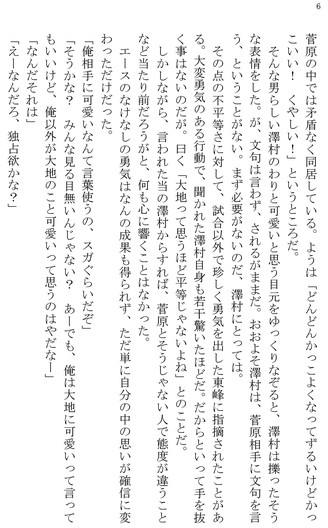 6
菅原の中では矛盾なく同居している。ようは「どんどんかっこよくなってずるいけどかっ
こいい！　くやしい！」というところだ。
そんな男らしい澤村のわりと可愛いと思う目元をゆっくりなぞると、澤村は擽ったそう
な表情をした。が、文句は言わず、されるがままだ。おおよそ澤村は、菅原相手に文句を言
う、ということがない。まず必要がないのだ、澤村にとっては。
その点の不平等さに対して、試合以外で珍しく勇気を出した東峰に指摘されたことがあ
る。大変勇気のある行動で、聞かれた澤村自身も若干驚いたほどだ。だからといって手を抜
く事はないのだが。曰く「大地って思うほど平等じゃないよね」とのことだ。
しかしながら、言われた当の澤村からすれば、菅原とそうじゃない人で態度が違うこと
など当たり前だろうがと、何も心に響くことはなかった。
エースのなけなしの勇気はなんの成果も得られず、ただ単に自分の中の思いが確信に変
わっただけだった。
「俺相手に可愛いなんて言葉使うの、スガぐらいだぞ」
「そうかな？　みんな見る目無いんじゃない？　あーでも、俺は大地に可愛いって言って
もいいけど、俺以外が大地のこと可愛いって思うのはやだなー」
「なんだそれは」
「えーなんだろ、独占欲かな？」